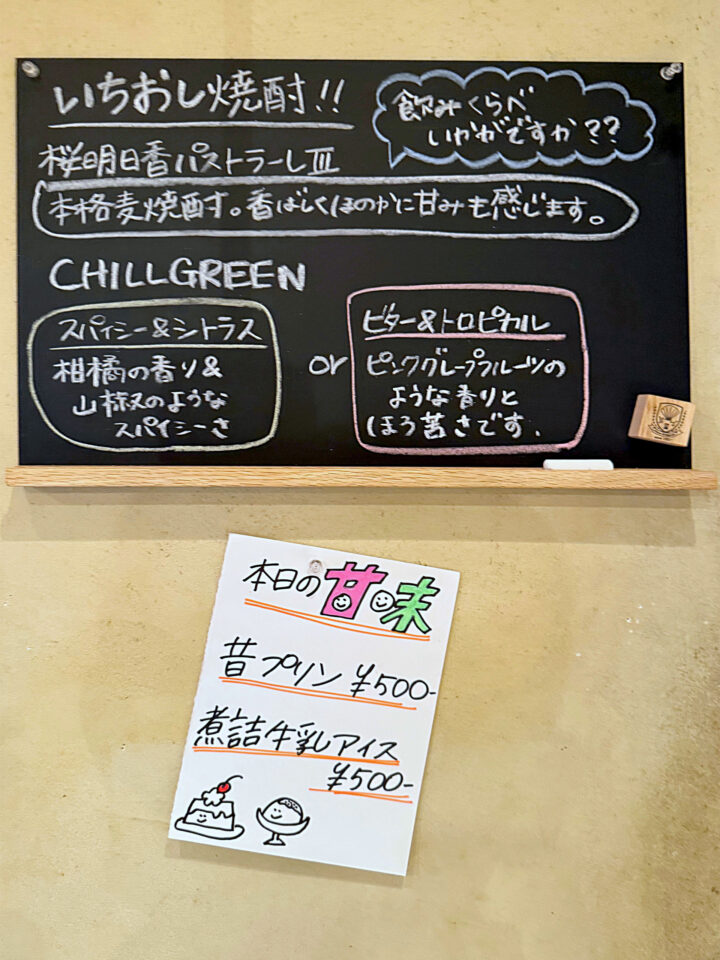 いちおし焼酎!!
飲みくらべ
いかがですか??
桜明日香パストラーレⅢ
本格麦焼酎。香ばしくほのかに甘みも感じます。
CHILLGREEN
スパイシー&シトラス
柑橘の香り&
山椒のような
スパイシーさ
or
ビター&トロピカル
ピンクグレープフルーツの
ような香りと
ほろ苦さです.
本日の甘味
昔プリン ¥500-
煮詰牛乳アイス
¥500-